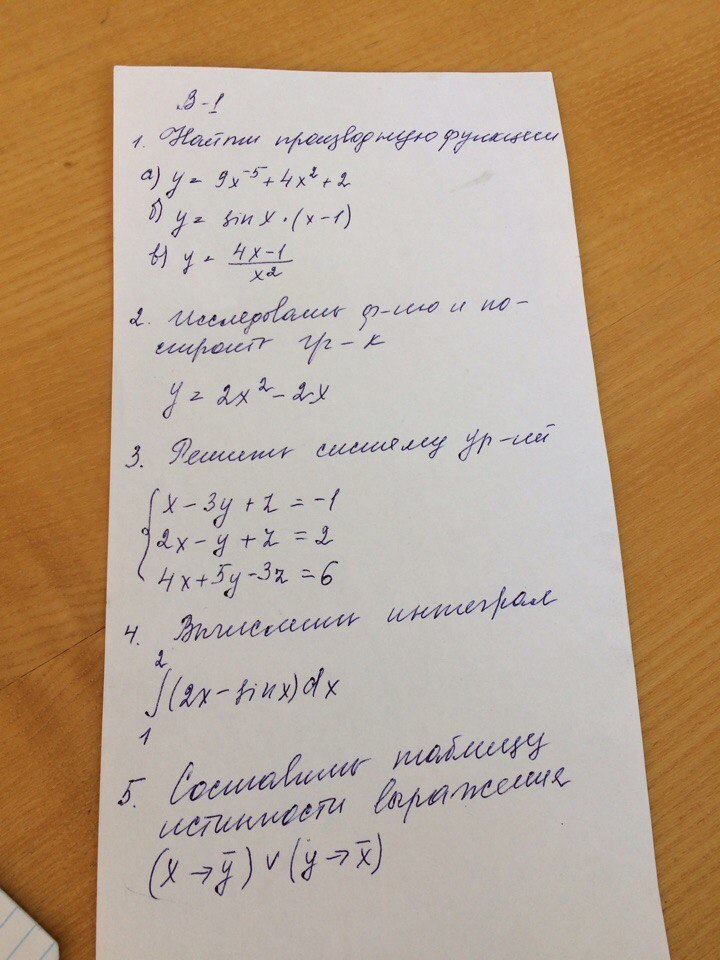 В-1
1. Найти производную функции
а) y = 9x⁻⁵ + 4x² + 2
б) y = sin x · (x-1)
в) y = (4x-1)/x²
2. Исследовать ф-ию и по-
строить гр-к
y = 2x² - 2x
3. Решить систему ур-ий
{ x - 3y + z = -1
2x - y + z = 2
4x + 5y - 3z = 6
4. Вычислить интеграл
∫₁² (2x - sin x) dx
5. Составить таблицу
истинности выражения
(x → ȳ) ∨ (y → x̄)